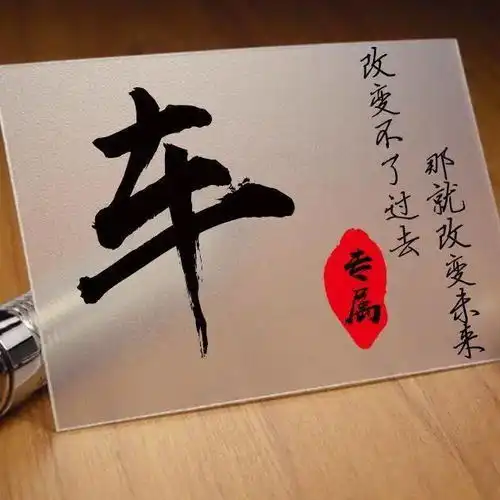 车
改变不了过去
那就改变未来
专属